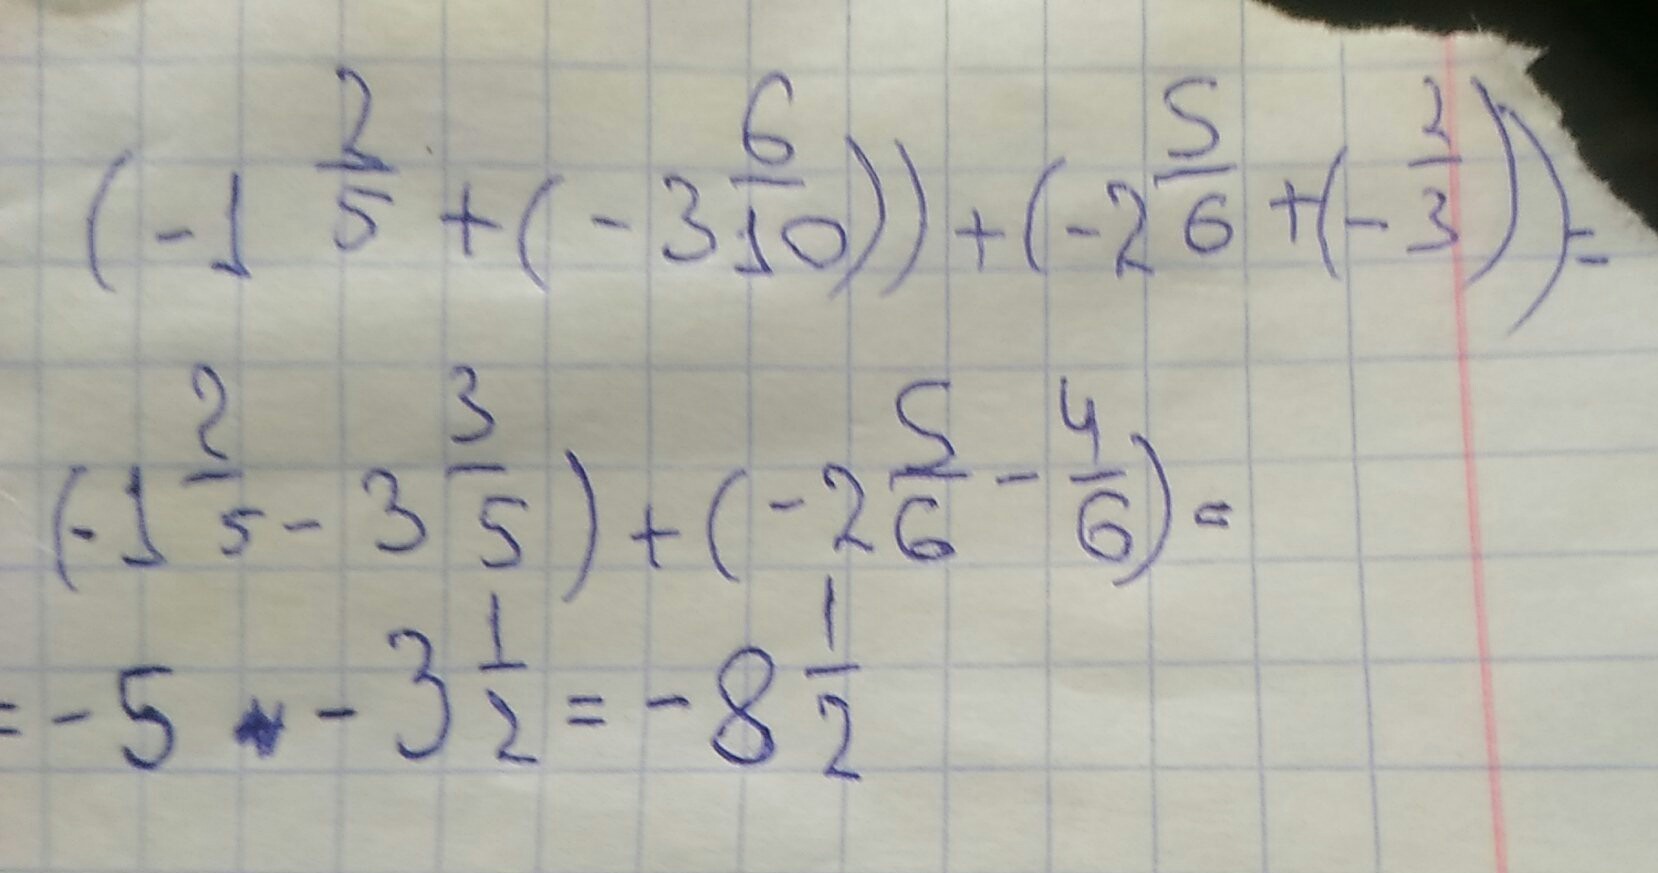 (-1 2/5 + (-3 6/10)) + (-2 5/6 + (- 2/3)) =
(-1 2/5 - 3 3/5) + (-2 5/6 - 4/6) =
= -5 - 3 1/2 = -8 1/2